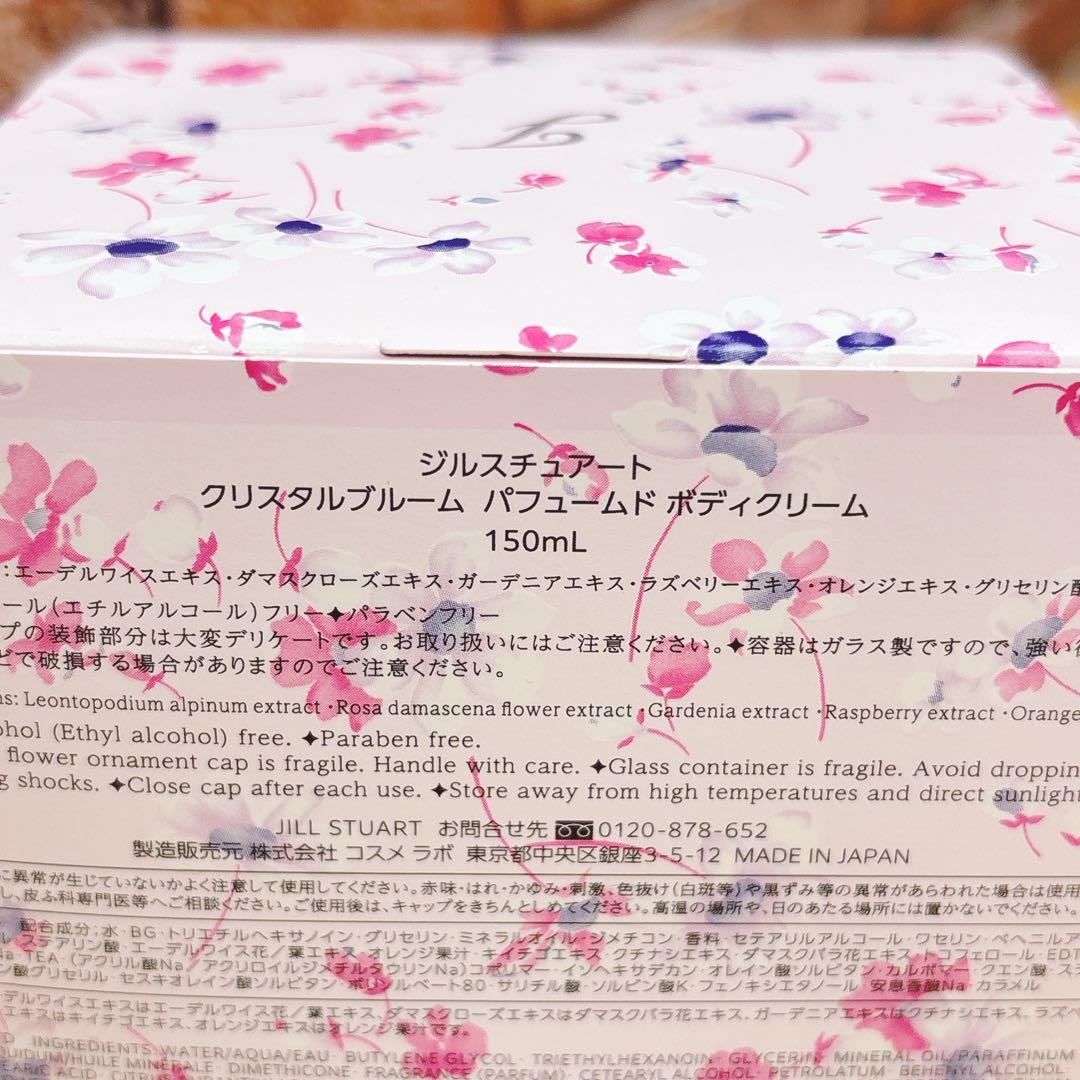 ジルスチュアート
クリスタルブルーム パフュームド ボディクリーム
150mL
:エーデルワイスエキス・ダマスクローズエキス・ガーデニアエキス・ラズベリーエキス・オレンジエキス・グリセリン
ール(エチルアルコール)フリー✦パラベンフリー
プの装飾部分は大変デリケートです。お取り扱いにはご注意ください。✦容器はガラス製ですので、強い
どで破損する場合がありますのでご注意ください。
ns: Leontopodium alpinum extract・Rosa damascena flower extract・Gardenia extract・Raspberry extract・Orange
ohol (Ethyl alcohol) free. ✦Paraben free.
flower ornament cap is fragile. Handle with care. ✦Glass container is fragile. Avoid droppin
g shocks. ✦Close cap after each use. ✦Store away from high temperatures and direct sunlight
JILL STUART お問合せ先 0120-878-652
製造販売元 株式会社 コスメ ラボ 東京都中央区銀座3-5-12 MADE IN JAPAN
に異常が生じていないかよく注意して使用してください。赤味・はれ・かゆみ・刺激、色抜け(白斑等)や黒ずみ等の異常があらわれた場合は使用
し、皮ふ科専門医等へご相談ください。ご使用後は、キャップをきちんとしめてください。高温の場所や、日のあたる場所には置かないでください。
配合成分;水・BG・トリエチルヘキサノイン・グリセリン・ミネラルオイル・ジメチコン・香料・セテアリルアルコール・ワセリン・ベヘニルア
ル・ステアリン酸・エーデルワイス花/葉エキス・オレンジ果汁・キイチゴエキス・クチナシエキス・ダマスクバラ花エキス・トコフェロール・EDT
Na・TEA・(アクリル酸Na/アクリロイルジメチルタウリンNa)コポリマー・イソヘキサデカン・オレイン酸ソルビタン・カルボマー・クエン酸・ス
ン酸グリセリル・セスキオレイン酸ソルビタン・ポリソルベート80・サリチル酸・ソルビン酸K・フェノキシエタノール・安息香酸Na・カラメル
デルワイスエキスはエーデルワイス花/葉エキス、ダマスクローズエキスはダマスクバラ花エキス、ガーデニアエキスはクチナシエキス、ラズベ
エキスはキイチゴエキス、オレンジエキスはオレンジ果汁です。
INGREDIENTS: WATER/AQUA/EAU・BUTYLENE GLYCOL・TRIETHYLHEXANOIN・GLYCERIN・MINERAL OIL/PARAFFINUM
QUIDUM/HUILE MINERALE・DIMETHICONE・FRAGRANCE (PARFUM)・CETEARYL ALCOHOL・PETROLATUM・BEHENYL ALCOHOL